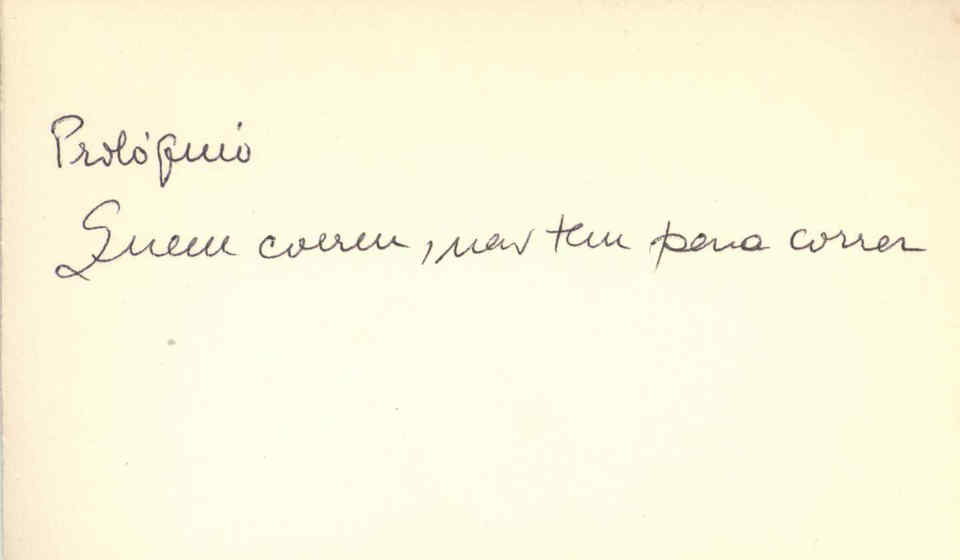 Prolóquio
Quem correu, não tem pena correr